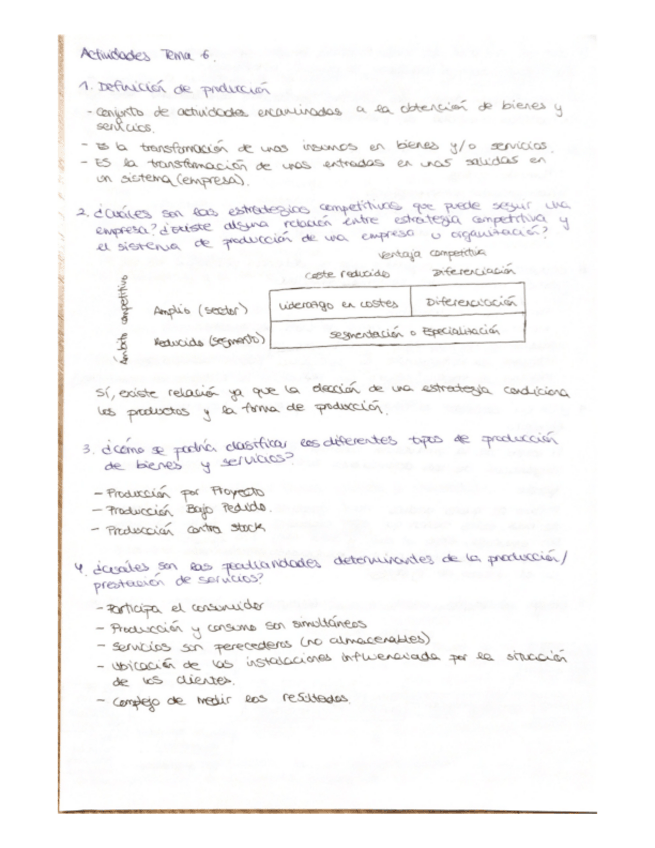 Actividades Tema 6.
1. Definición de producción
- Conjunto de actividades encaminadas a la obtención de bienes y
servicios.
- Es la transformación de unos insumos en bienes y/o servicios.
- Es la transformación de unas entradas en unas salidas en
un sistema (empresa).
2. ¿Cuáles son las estrategias competitivas que puede seguir una
empresa? ¿Existe alguna relación entre estrategia competitiva y
el sistema de producción de una empresa u organización?
Ventaja competitiva
Coste reducido Diferenciación
Ámbito competitivo
Amplio (sector) Liderazgo en costes Diferenciación
Reducido (segmento) Segmentación o Especialización
Sí, existe relación ya que la elección de una estrategia condiciona
los productos y la forma de producción.
3. ¿Cómo se podría clasificar los diferentes tipos de producción
de bienes y servicios?
- Producción por Proyecto
- Producción Bajo Pedido.
- Producción contra stock
4. ¿Cuáles son las peculiaridades determinantes de la producción/
prestación de servicios?
- Participa el consumidor
- Producción y consumo son simultáneos
- Servicios son perecederos (no almacenables)
- Ubicación de las instalaciones influenciada por la situación
de los clientes.
- Complejo de medir los resultados.